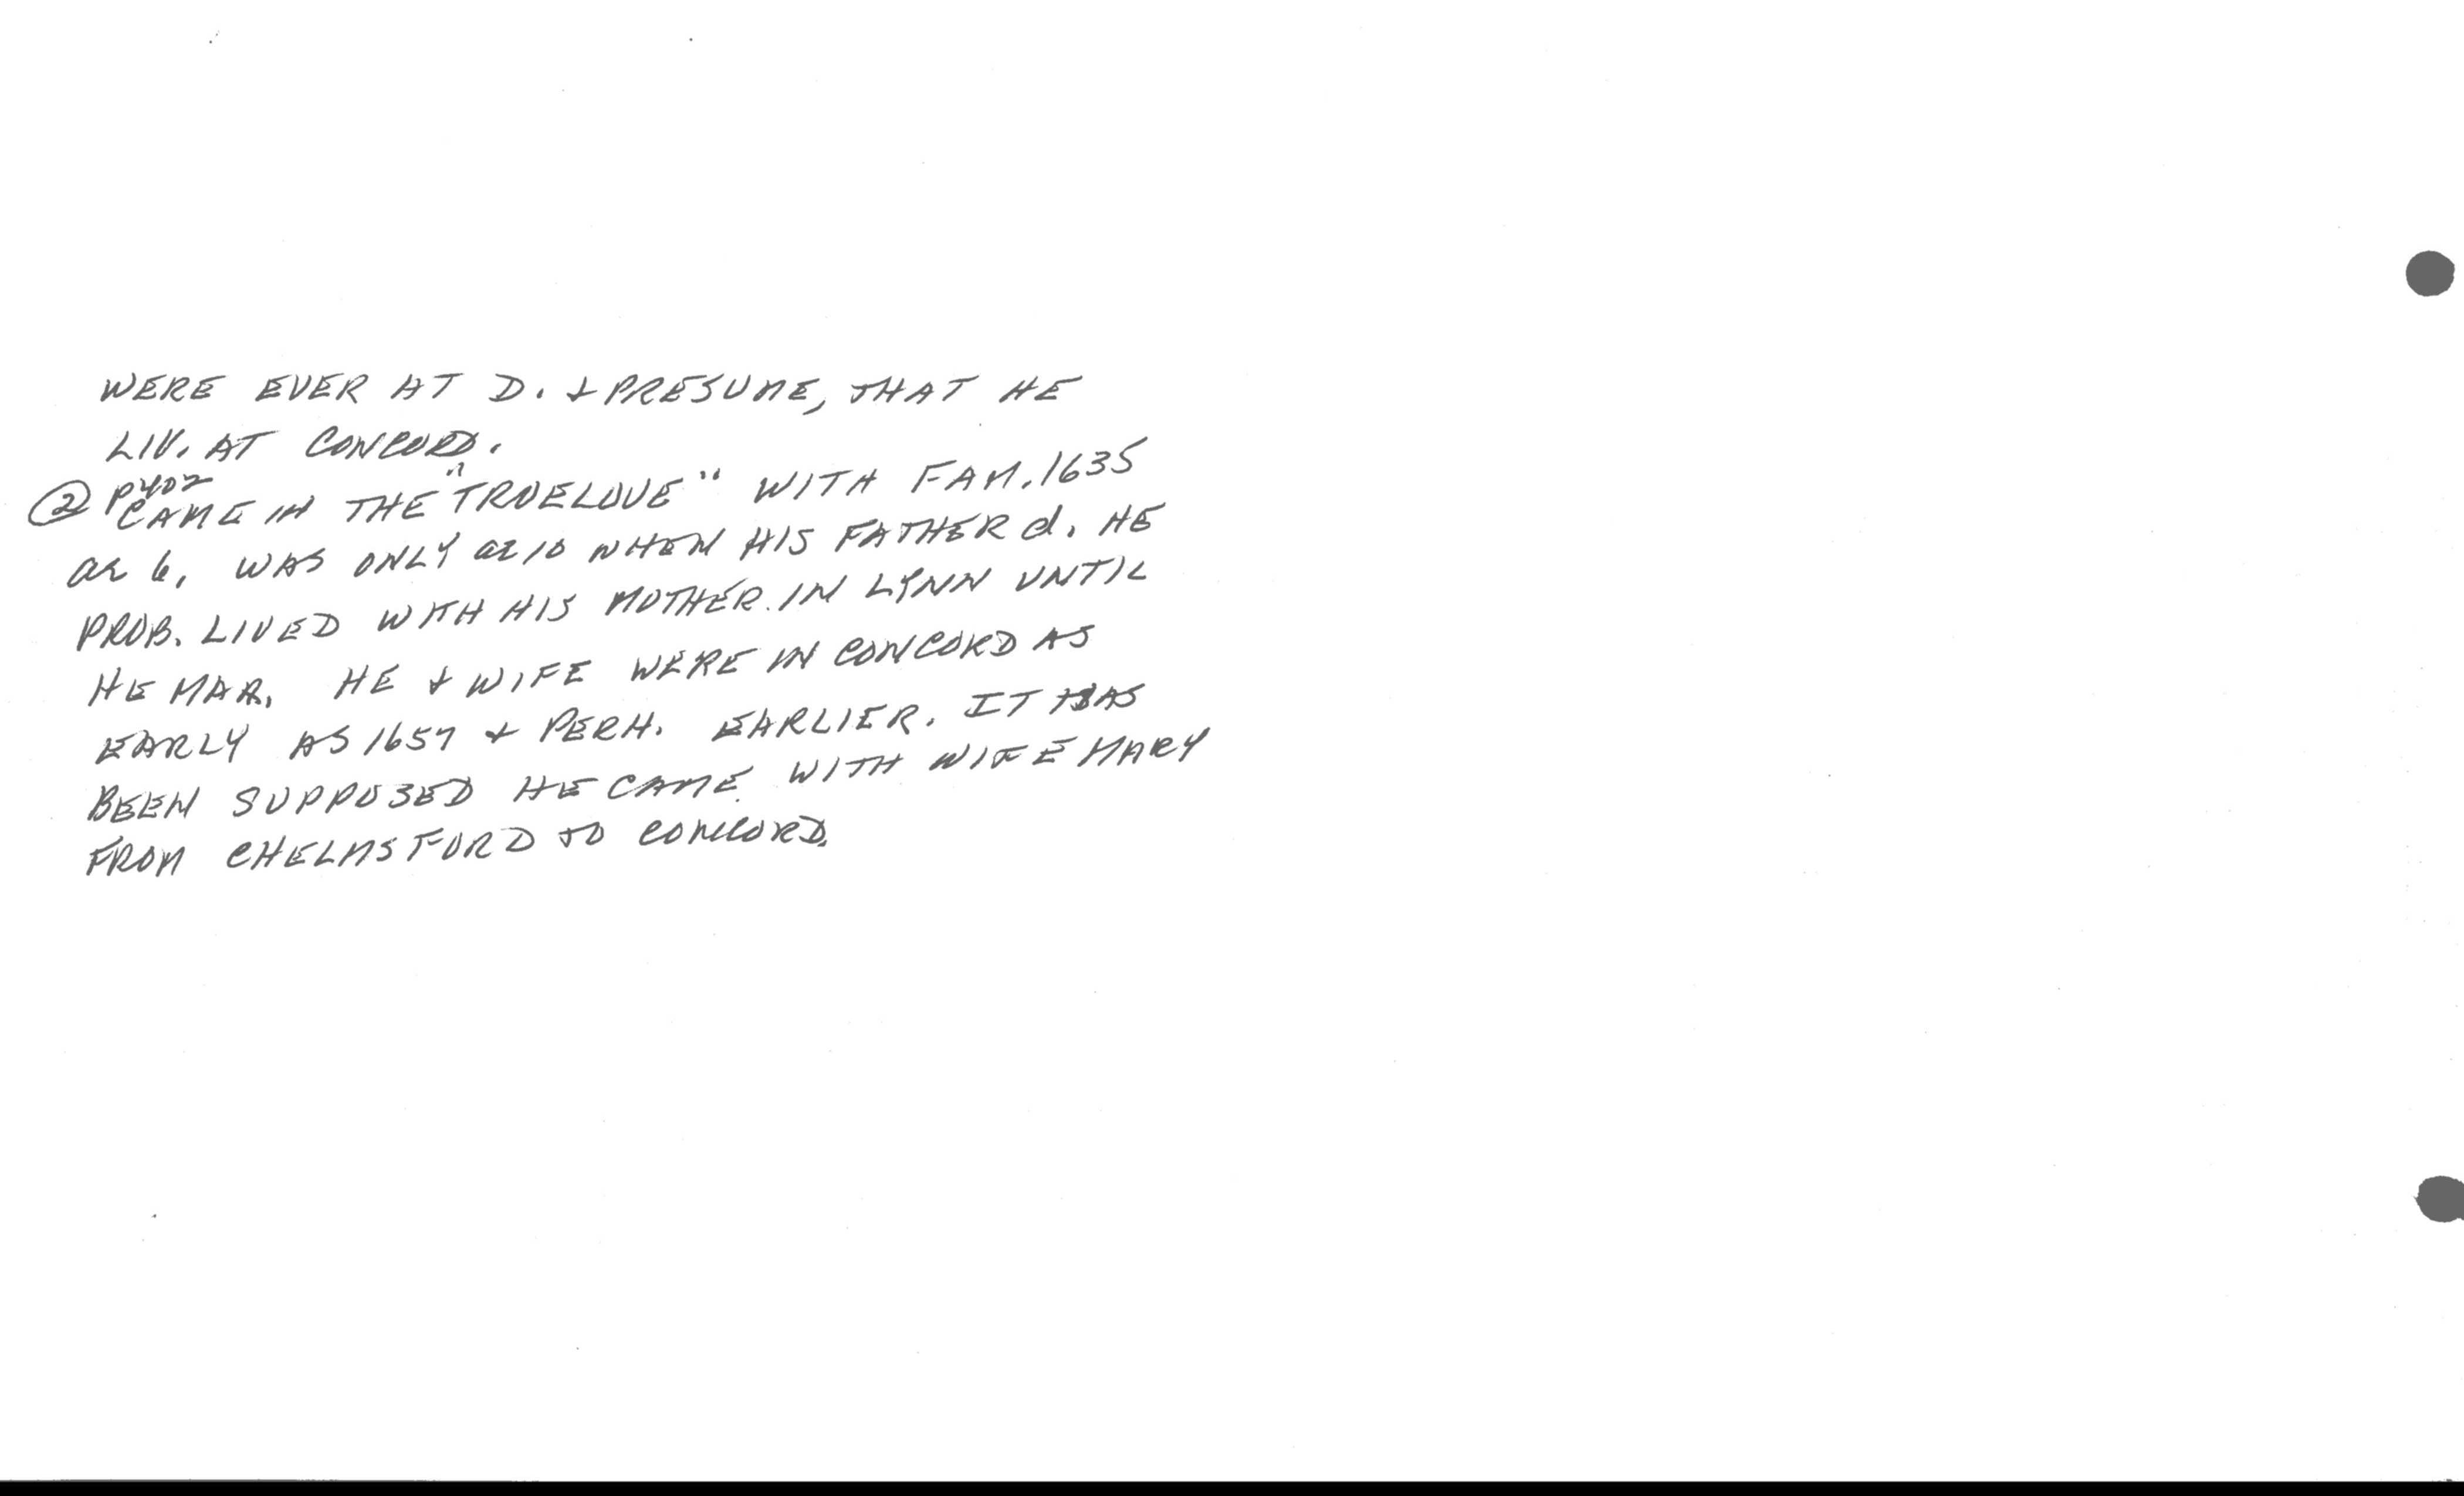 WERE EVER AT D. & PRESUME, THAT HE
LIV. AT CONCORD.
② P402
CAME IN THE "TRUELOVE" WITH FAM. 1635
ae 6. WAS ONLY ae 10 WHEN HIS FATHER d. HE
PROB. LIVED WITH HIS MOTHER IN LYNN UNTIL
HE MAR. HE & WIFE WERE IN CONCORD AS
EARLY AS 1657 & PERH. EARLIER. IT HAS
BEEN SUPPOSED HE CAME WITH WIFE MARY
FROM CHELMSFORD TO CONCORD.